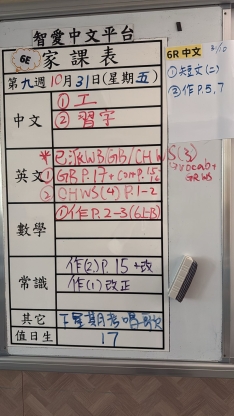 智愛中文平台
6E 家課表
第九週10月31日(星期五)
中文
① 工
② 習字
英文
*已派KWB/GB/CHWS(3)
① GB P.17+
② CHWS(4) P.1-2
vocab+
GRWS
數學
①作P.2-3(6上B)
常識
作(2)P.15+改
作(1)改正
其它
下星期考唱歌
值日生
17
6R 中文
①短文(二)
③作P.5,7